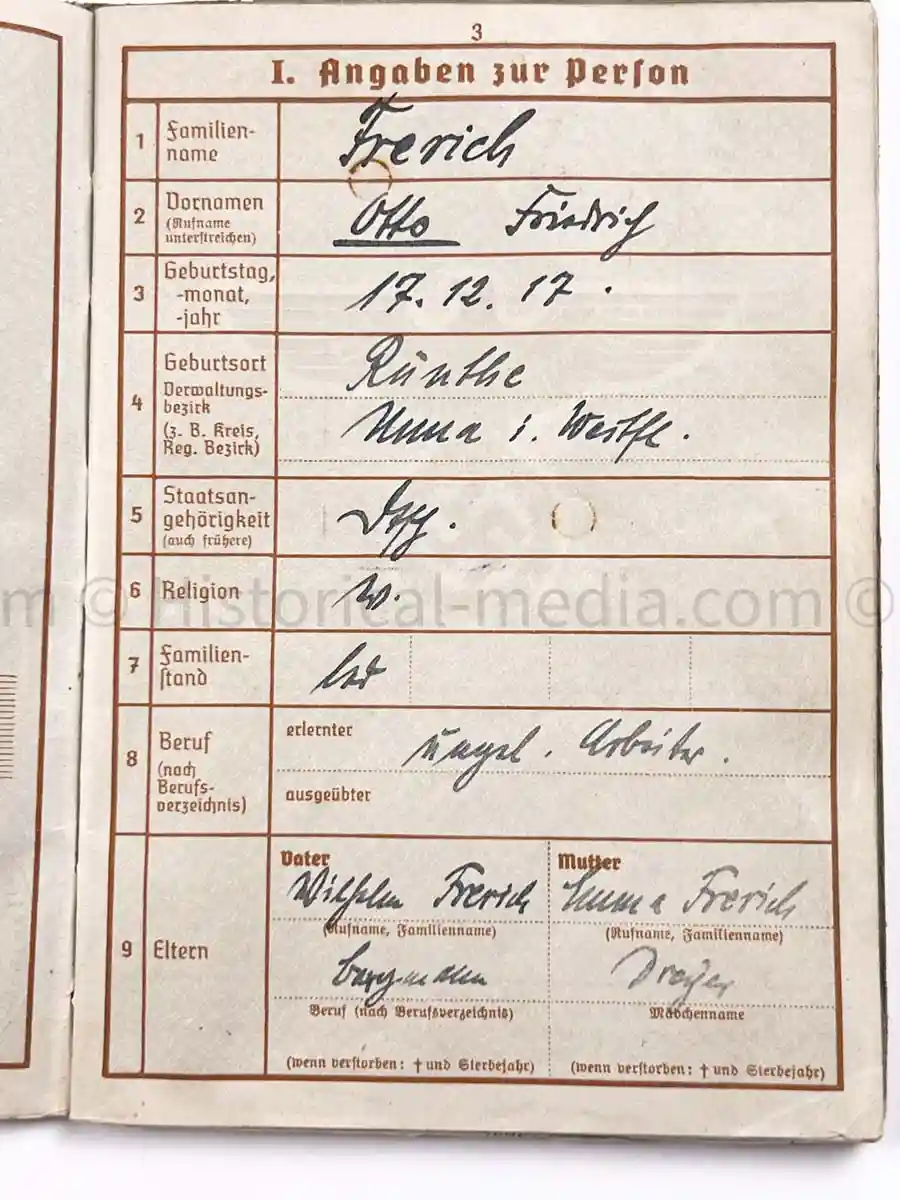 3
I. Angaben zur Person
1 Familien-
name
Frerich
2 Vornamen
(Rufname
unterstreichen)
Otto Friedrich
3 Geburtstag,
-monat,
-jahr
17. 12. 17.
4 Geburtsort
Verwaltungs-
bezirk
(z. B. Kreis,
Reg. Bezirk)
Rünthe
Unna i. Westf.
5 Staatsan-
gehörigkeit
(auch frühere)
6 Religion
7 Familien-
stand
led
8 Beruf
(nach
Berufs-
verzeichnis)
erlernter
ungel. Arbeiter.
ausgeübter
9 Eltern
Vater
Wilhelm Frerich
(Rufname, Familienname)
Bergmann
Beruf (nach Berufsverzeichnis)
(wenn verstorben: † und Sterbejahr)
Mutter
Emma Frerich
(Rufname, Familienname)
Dreyer
Mädchenname
(wenn verstorben: † und Sterbejahr)
m © Historical-media.com ©